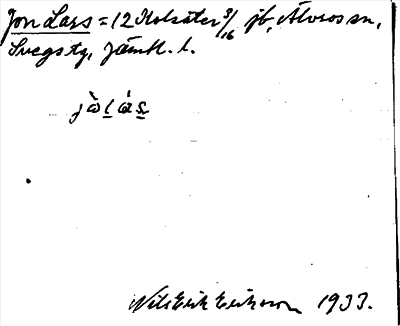 Jon Lars = 12 Kolsäter 3/16 jb, Älvros sn,
Svegs tg, Jämtl. l.
jòḷás̱
Nils Erik Eriksson 1933.